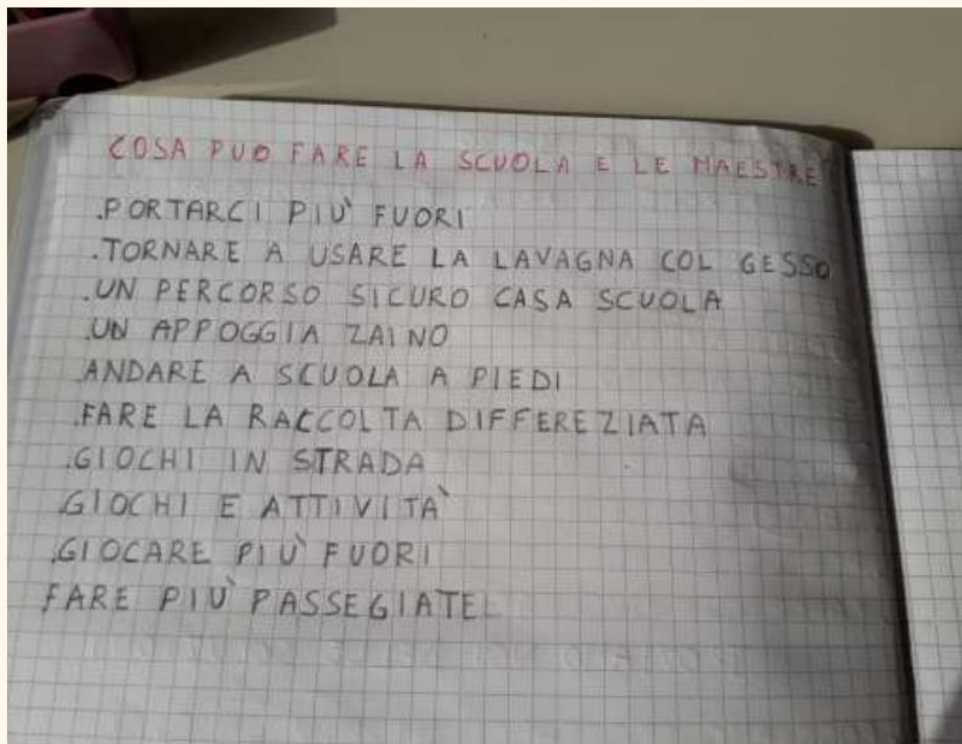 COSA PUO FARE LA SCUOLA E LE MAESTRE
.PORTARCI PIÙ FUORI
.TORNARE A USARE LA LAVAGNA COL GESSO
.UN PERCORSO SICURO CASA SCUOLA
.UN APPOGGIA ZAINO
.ANDARE A SCUOLA A PIEDI
.FARE LA RACCOLTA DIFFEREZIATA
.GIOCHI IN STRADA
.GIOCHI E ATTIVITÀ
.GIOCARE PIÙ FUORI
FARE PIÙ PASSEGIATE